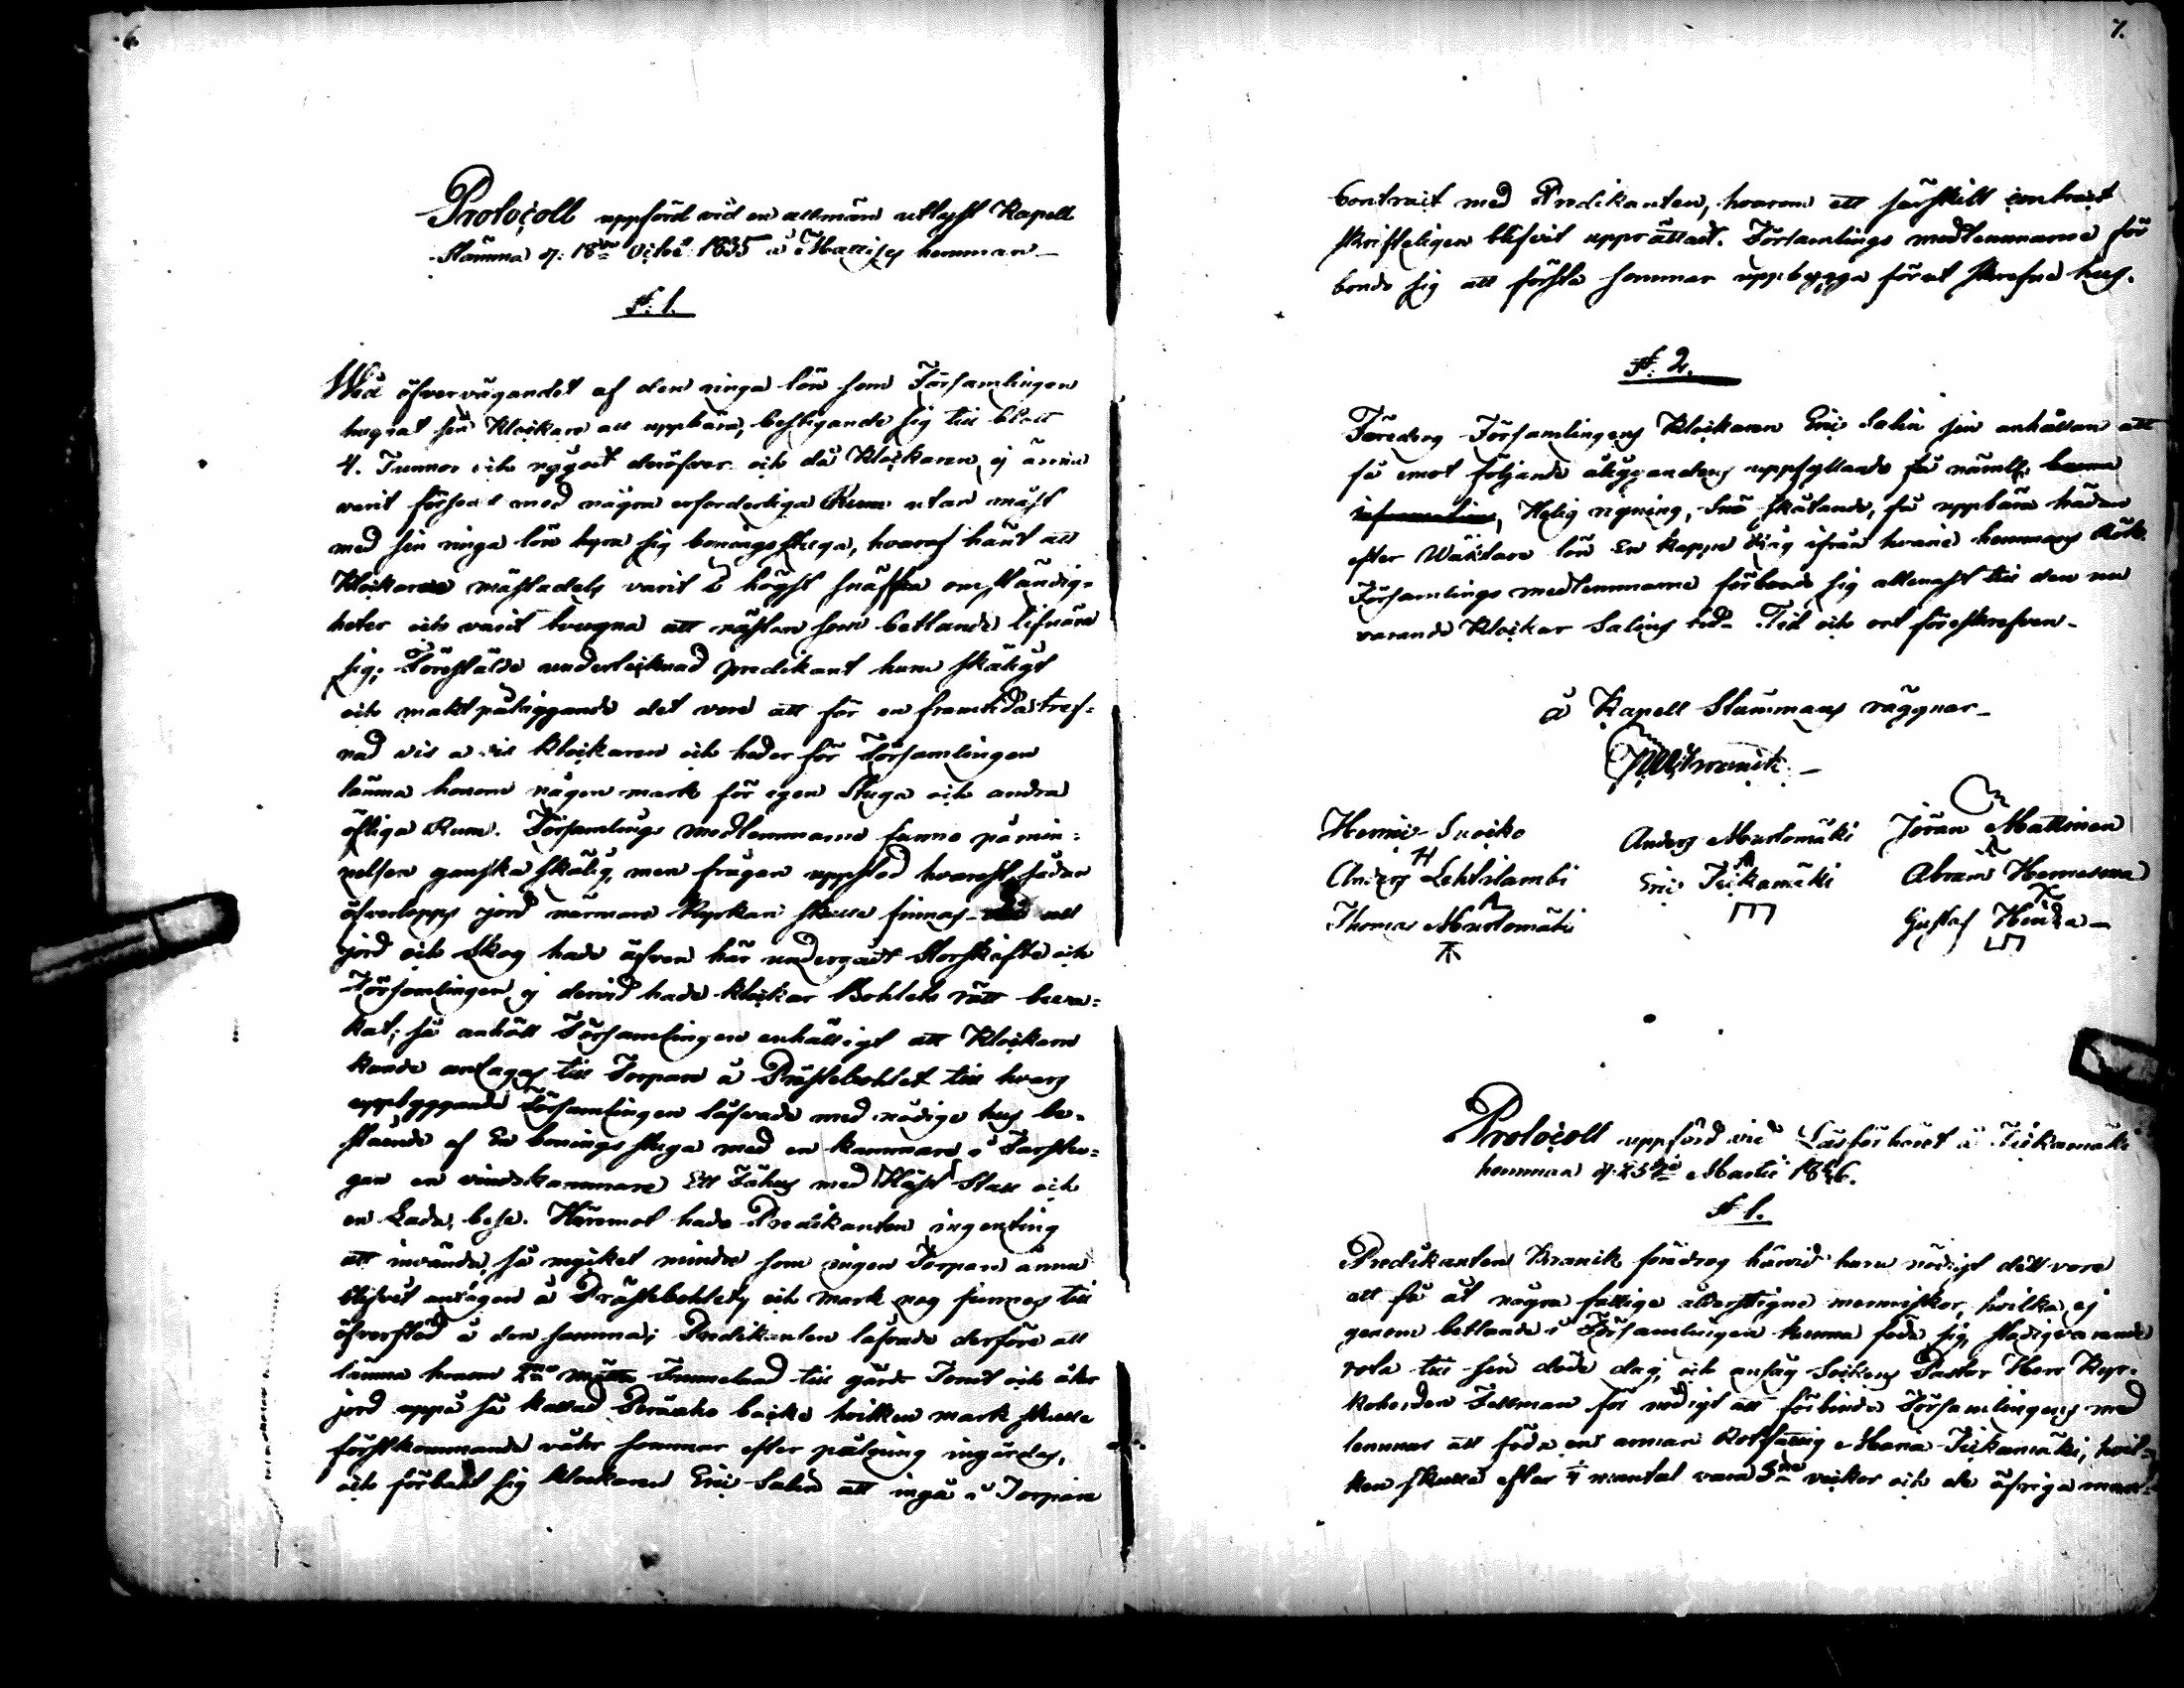 6.
Protocoll uppförd vid en allmän utlyst Kapell
Stämma d: 18de Octob. 1835 å Mattises hemman
§. 1.
Wid öfvervägandet af den ringa lön som Församlingen
hugnat sin Klockare att uppbära, bestigande sig till blott
4. Tunnor och något deröfver och då Klockaren ej ännu
varit försedt med några erforderliga Rum utan måst
med sin ringa lön hyra sig boningsstuga, hvaraf händt att
Klockaren mästadels varit i högst knappa omständig-
heter och varit tvugna att nästan som betlande lifnära
sig; Föreställde undertecknad predikant huru skäligt
och maktpåliggande det vore att för en framtida tref-
nad vis a vis klockaren och heder för Församlingen
lämna honom någon mark för egen Stuga och andra
öfliga Rum. Församlings medlemmarne funno påmin-
nelsen ganska skälig, men frågan uppstod hvarest sådan
öfverlopps jord närmare Kyrkan skulle finnas att
jord och Skog hade äfven här undergådt Storskifte och
Församlingen ej dervid hade klockar Bohlets rätt beva-
kat; så anhöll Församlingen enhälligt att Klockaren
kunde antagas till Torpare å Prästebohlet till hvars
uppbyggande Församlingen låfvade med nödige hus be-
stående af En bonings stuga med en kammare i Farstu-
gan en vindskammare Ett Fähus med Häst Stall och
en Lada. Häremot hade Predikanten ingenting
att invända, så mycket mindre som ingen Torpare ännu
blifvit antagen å Prästebohlets och mark nog finnes till
öfverflöd å den samma; Predikanten låfvade derföre att
lämna honom 2ne Tunneland till gårds Tomt och åker
jord uppå så kallad Peräaho backe hvilken mark skulle
förstkommande vår sommar efter pålysning ingärdes,
och förband sig klockaren Eric Salin att ingå i Torpare
7.
Contract med Predikanten, hvarom ett särskilt contract
skrifteligen blifvit upprättadt. Församlings medlemmarne för
bondo sig att första sommar uppbygga förut skrefne hus.
§. 2.
Föredrog Församlingens Klockaren Eric Salin sin anhållan att
få emot följande åligganders uppfyllande nämlg
Helg ringning, Snö skåtande, få uppbära hädan
efter Wäktare lön En kappe Råg ifrån hvarie hemmans Rök.
Församlings medlemmarne förbondo sig allenast till den nu
varande Klockar Salins tid. Tid och ort föreskrefven
å Kapell Stämmans vägnar
Henric Suoiko
Anders Mustomäki
Jöran Mattinen
Anders Lehtilambi
Eric Tiikamäki
Abram
Thomas Mustomäki
Gustaf
Protocoll uppförd vid Läsförhöret å Tiikamäki
hemman d: 25te Martii 1836.
§ 1.
Predikanten föredrog härvid huru nödigt det vore
att få åt några fattige ålderstigne menniskor, hvilka ej
genom betlande i Församlingen kunna föda sig, stadigvarande
rota till sin döde dag, och ansåg Sockens Pastor Herr Kyr-
koherden Fellman för nödigt att förbinda Församlingens med
lemmar att föda en annan Rotfattig Maria Tiikamäki, hvil-
ken skulle efter 1/4 mantal vara 3ne veckor och de öfriga